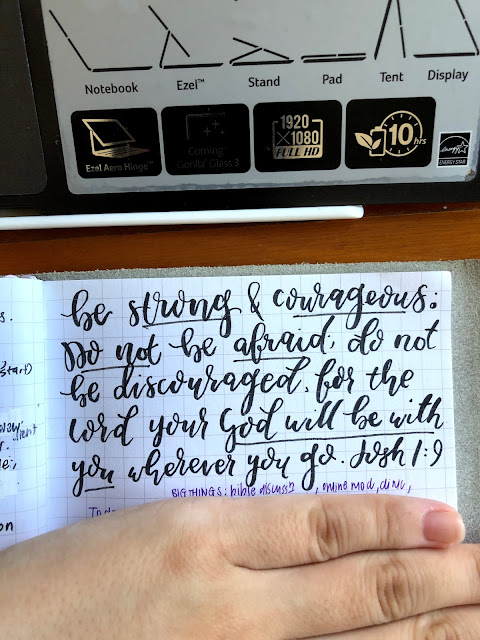 Notebook Ezel™ Stand Pad Tent Display
Ezel Aero Hinge™
Corning
Gorilla Glass 3
1920
×1080
FULL HD
10 hrs
ENERGY STAR
be strong & courageous:
Do not be afraid, do not
be discouraged, for the
Lord your God will be with
you wherever you go. Josh 1:9
BIG THINGS: bible